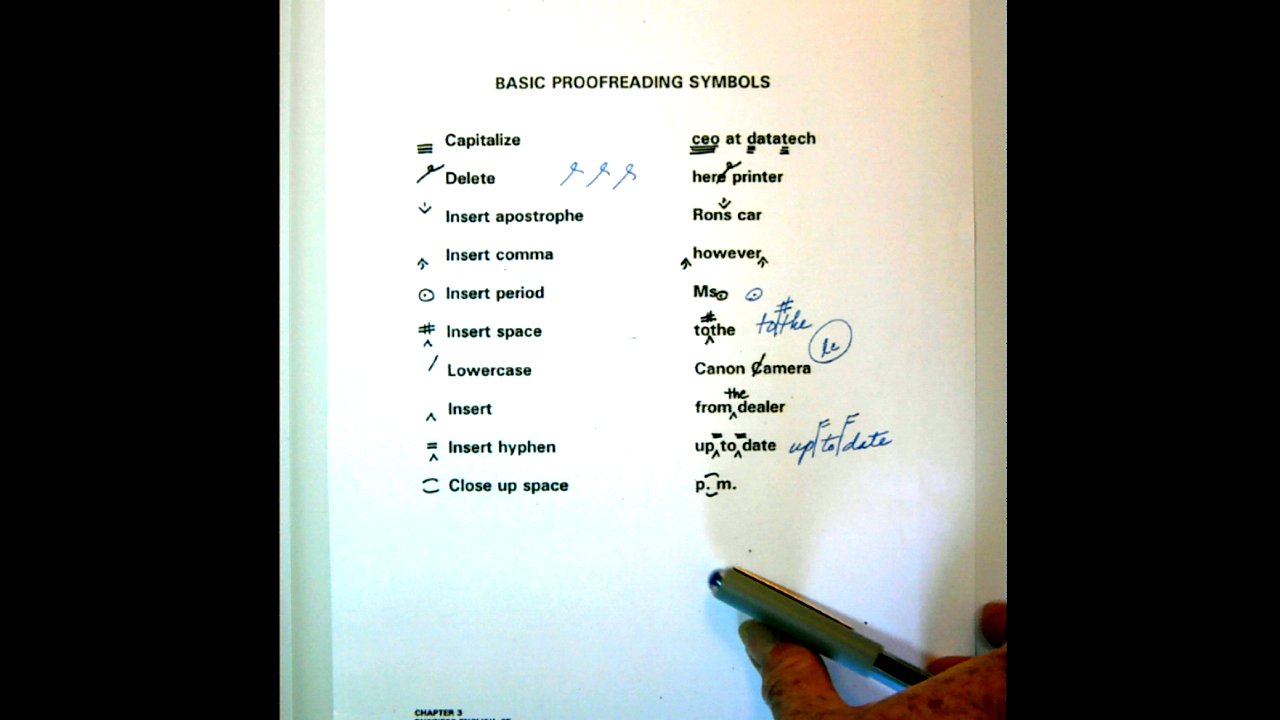 BASIC PROOFREADING SYMBOLS
Capitalize ceo at datatech
Delete here printer
Insert apostrophe Rons car
Insert comma however
Insert period Ms
# Insert space tothe # to the # lc
Lowercase Canon Camera
Insert from the dealer
= Insert hyphen up to date up to date
Close up space p. m.
CHAPTER 3